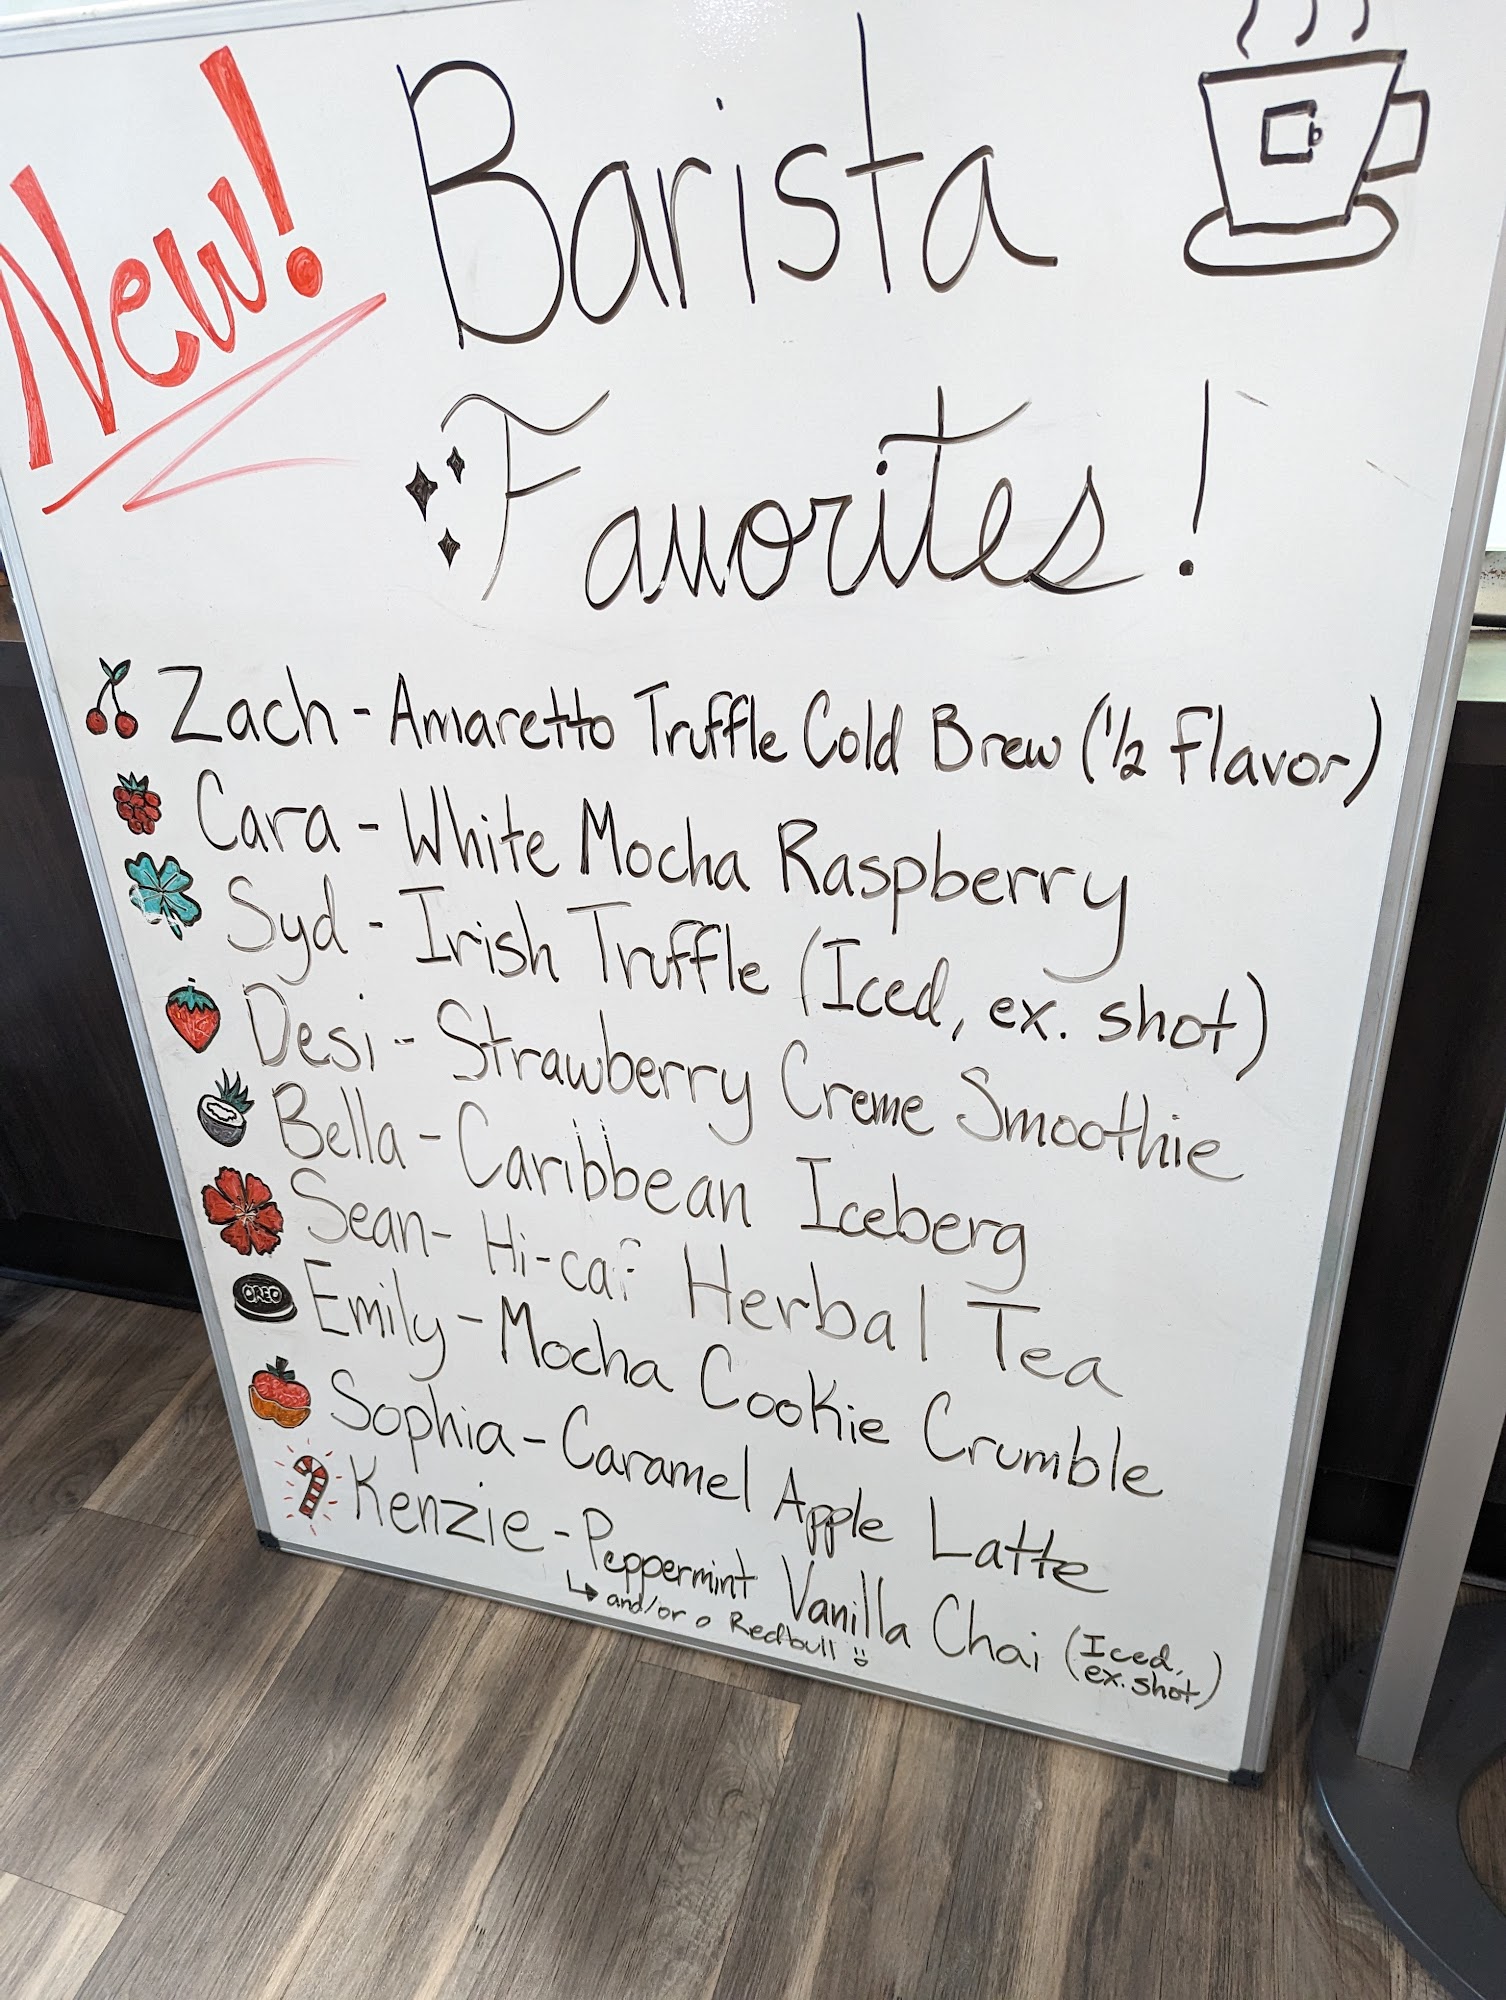 New!
Barista
Favorites!
Zach - Amaretto Truffle Cold Brew (1/2 flavor)
Cara - White Mocha Raspberry
Syd - Irish Truffle (Iced, ex. shot)
Desi - Strawberry Creme Smoothie
Bella - Caribbean Iceberg
Sean - Hi-caf Herbal Tea
OREO
Emily - Mocha Cookie Crumble
Sophia - Caramel Apple Latte
Kenzie - Peppermint Vanilla Chai (Iced, ex. shot)
↳ and/or a Redbull :)